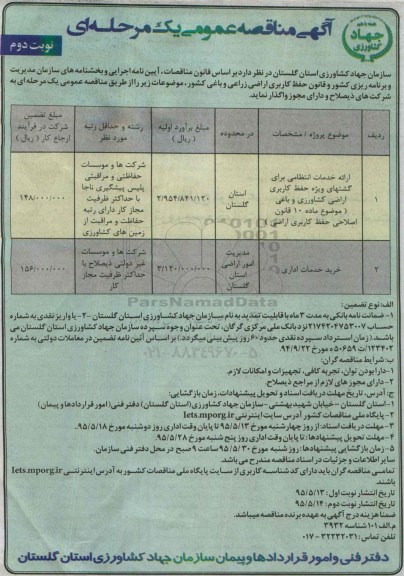 آگهی مناقصه عمومی یک مرحله‌ای
نوبت دوم
جهاد
کشاورزی
سازمان جهاد کشاورزی استان گلستان در نظر دارد بر اساس قانون مناقصات، آیین نامه اجرایی و بخشنامه های سازمان مدیریت
و برنامه ریزی کشور و قانون حفظ کاربری اراضی زراعی و باغی کشور، موضوعات زیر را از طریق مناقصه عمومی یک مرحله ای به
شرکت های ذیصلاح و دارای مجوز واگذار نماید.
ردیف | موضوع پروژه / مشخصات | در محدوده | مبلغ برآورد اولیه ( ریال ) | رشته و حداقل رتبه مورد نظر | مبلغ تضمین شرکت در فرآیند ارجاع کار ( ریال )
۱ | ارائه خدمات انتظامی برای گشتهای ویژه حفظ کاربری اراضی کشاورزی و باغی ( موضوع ماده ۱۰ قانون اصلاحی حفظ کاربری اراضی ) | استان گلستان | ۲/۹۵۴/۸۴۱/۱۲۰ | شرکت ها و موسسات حفاظتی و مراقبتی پلیس پیشگیری ناجا با حداکثر ظرفیت مجاز کار دارای رتبه حفاظت و مراقبت از زمین های کشاورزی | ۱۴۸/۰۰۰/۰۰۰
۲ | خرید خدمات اداری | مدیریت امور اراضی استان گلستان | ۳/۱۲۰/۰۰۰/۰۰۰ | شرکت ها و موسسات غیر دولتی ذیصلاح با حداکثر ظرفیت مجاز کار | ۱۵۶/۰۰۰/۰۰۰
الف: نوع تضمین:
۱- ضمانت نامه بانکی به مدت ۳ ماه با قابلیت تمدید به نام سازمان جهاد کشاورزی استان گلستان ۲- یا واریز نقدی به شماره
حساب ۲۱۷۴۲۰۴۷۵۳۰۰۷ نزد بانک ملی مرکزی گرگان، تحت عنوان وجوه سپرده سازمان جهاد کشاورزی استان گلستان می
باشد. ( زمان استرداد سپرده نقدی حدود ۶۰ روز پیش بینی میگردد ) بر اساس آئین نامه تضمین در معاملات دولتی به شماره
۱۲۳۴۰۲/ت۵۰۶۵۹ه مورخ ۹۴/۹/۲۲
ب: شرایط مناقصه گران:
۱- دارا بودن توان، تجربه کافی، تجهیزات و امکانات لازم.
۲- دارای مجوز های لازم از مراجع ذیصلاح.
ج: آدرس، تاریخ مهلت دریافت اسناد و تحویل پیشنهادات، زمان بازگشایی:
۱- استان گلستان - خیابان شهید بهشتی - سازمان جهاد کشاورزی (استان گلستان) دفتر فنی (امور قراردادها و پیمان)
۲- پایگاه ملی مناقصات کشور آدرس سایت اینترنتی Iets.mporg.ir
۳- مهلت دریافت اسناد: از روز چهارشنبه مورخ ۹۵/۵/۱۳ تا پایان وقت اداری روز دوشنبه مورخ ۹۵/۵/۱۸.
۴- مهلت تحویل پیشنهادها: تا پایان وقت اداری روز پنج شنبه مورخ ۹۵/۵/۲۸.
۵- زمان بازگشایی پیشنهادها: روز شنبه مورخ ۹۵/۵/۳۰ ساعت ۹ صبح در محل دفتر فنی سازمان.
سایر اطلاعات و جزئیات در اسناد مناقصه مندرج می باشد.
تمامی مناقصه گران باید دارای کد شناسه کاربری از سایت پایگاه ملی مناقصات کشور به آدرس اینترنتی Iets.mporg.ir
باشند.
تاریخ انتشار نوبت اول: ۹۵/۵/۱۳
تاریخ انتشار نوبت دوم: ۹۵/۵/۱۴
ضمنا هزینه درج آگهی به عهده برنده مناقصه میباشد.
م.الف ۱۰۱ شناسه ۳۹۳۲
تلفن تماس: ۳۲۲۳۲۰۳۱ - ۰۱۷
دفتر فنی و امور قراردادها و پیمان سازمان جهاد کشاورزی استان گلستان
ParsNamadData
۰۲۱-۸۸۳۴۹۶۷۰-۵